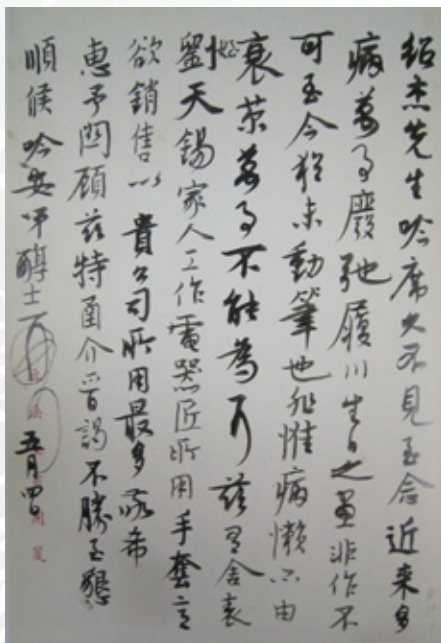 紹杰先生吟席久不見至念近来多
病萬事廢弛履川生日之畫非作不
可至今猶未動筆也非惟病懶亦由
衰茶萬事不能為耳茲有舍表
姪
劉天錫家人工作電器匠所用手套言
欲銷售以貴公司所用最多敬希
惠予關顧茲特函介首謁不勝至懇
順候吟安弟醇士
五月四日